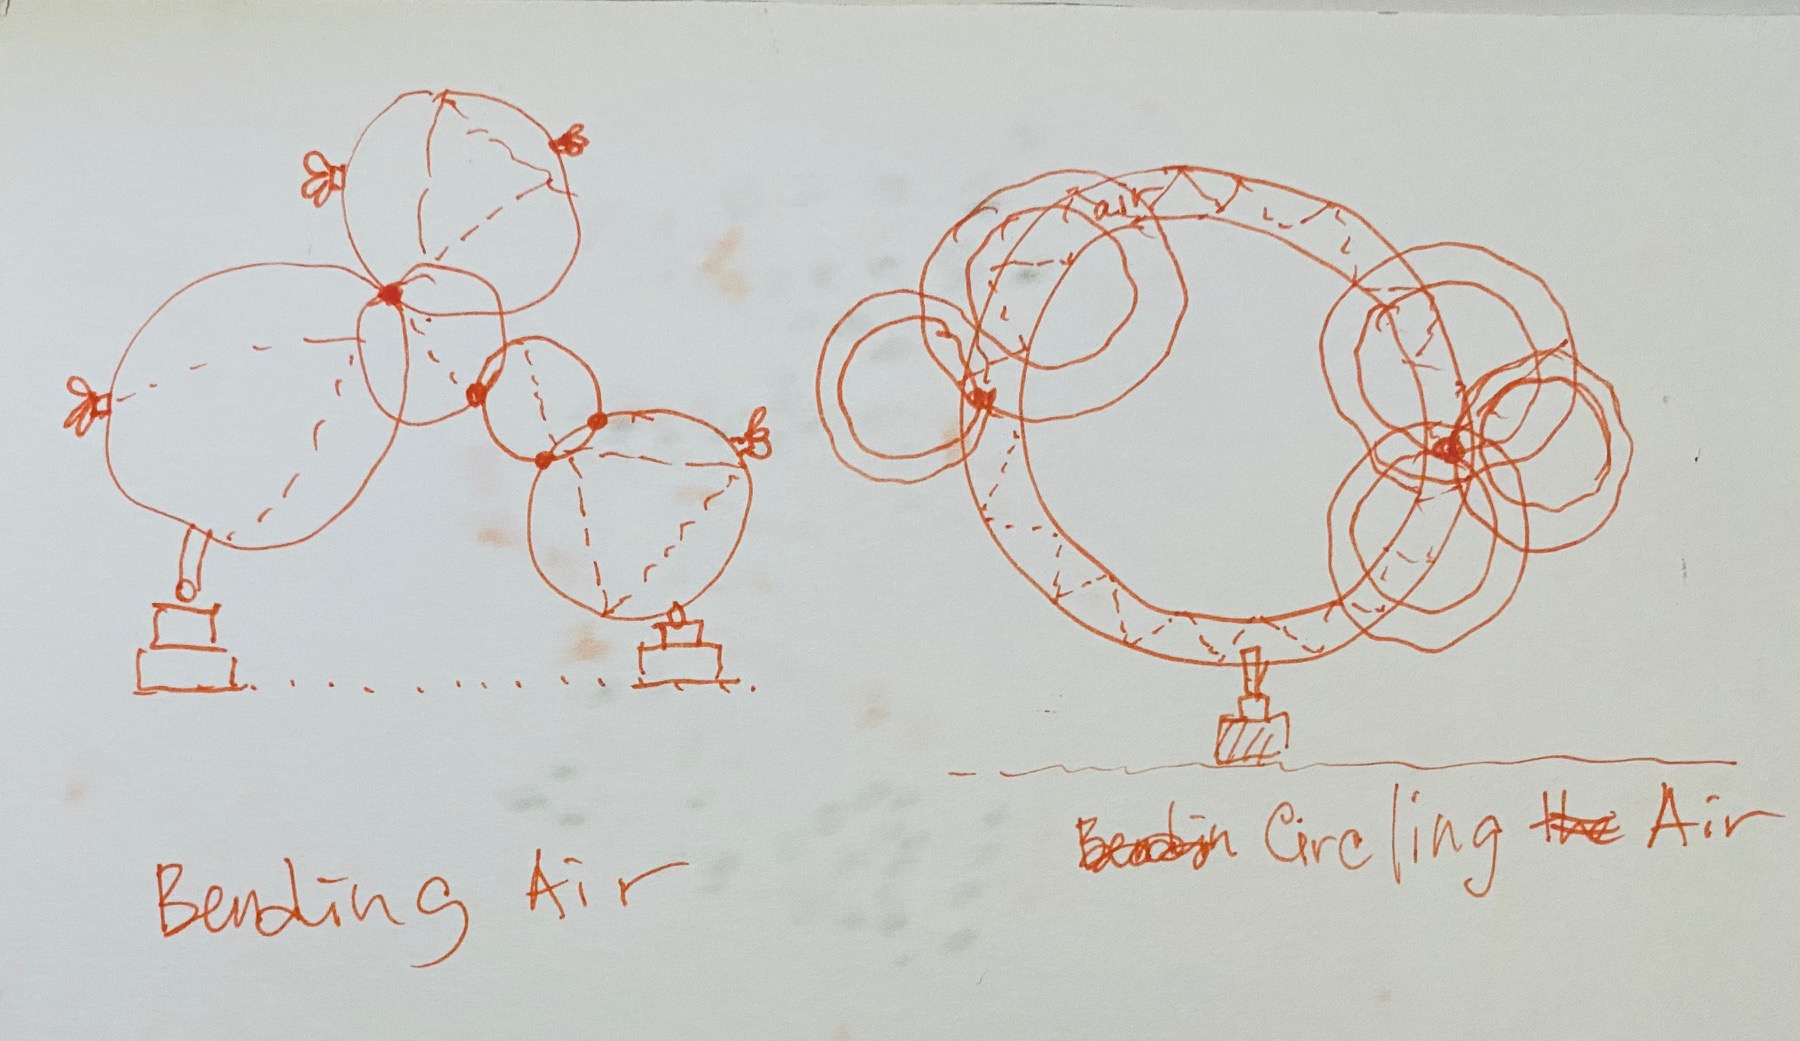 air
Bending Air
Bendin Circling the Air